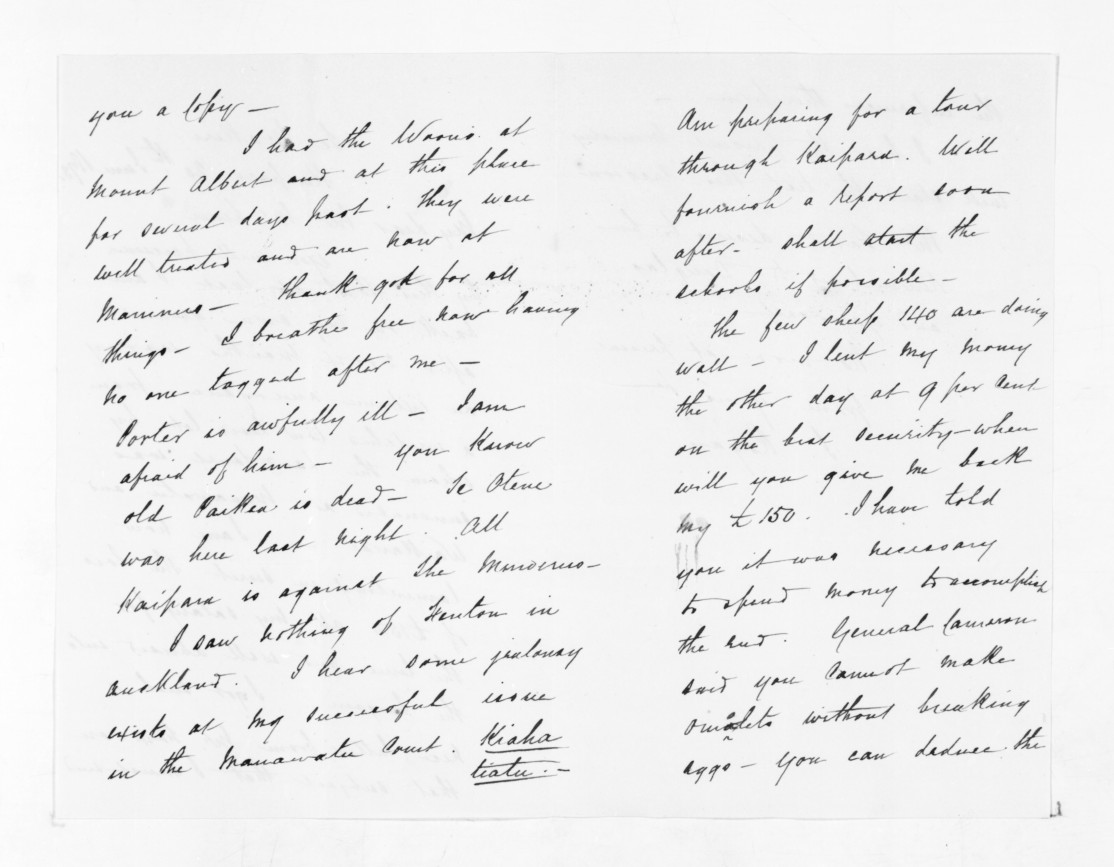 you a Copy —
I had the Waoris at
Mount Albert and at this place
for several days past. They were
well treated and are now at
Mariners — Thank god for all
things — I breathe free now having
no one tagged after me —
Porter is awfully ill — I am
afraid of him — You Know
old Paikea is dead — Te Otene
was here last night. All
Kaipara is against the Murderers —
I saw nothing of Fenton in
Auckland. I hear some jealousy
exists at my successful issue
in the Manawatu Court. Kiaha
tiatu. —
Am preparing for a tour
through Kaipara. Will
fournish a report soon
after — shall start the
schools if possible —
The few sheep 140 are doing
well — I lent my money
the other day at 9 per Cent
on the best security — when
will you give me back
my £150. I have told
you it was necessary
to spend money to accomplish
the end. General Cameron
said you cannot make
omelets without breaking
eggs — You can deduce the